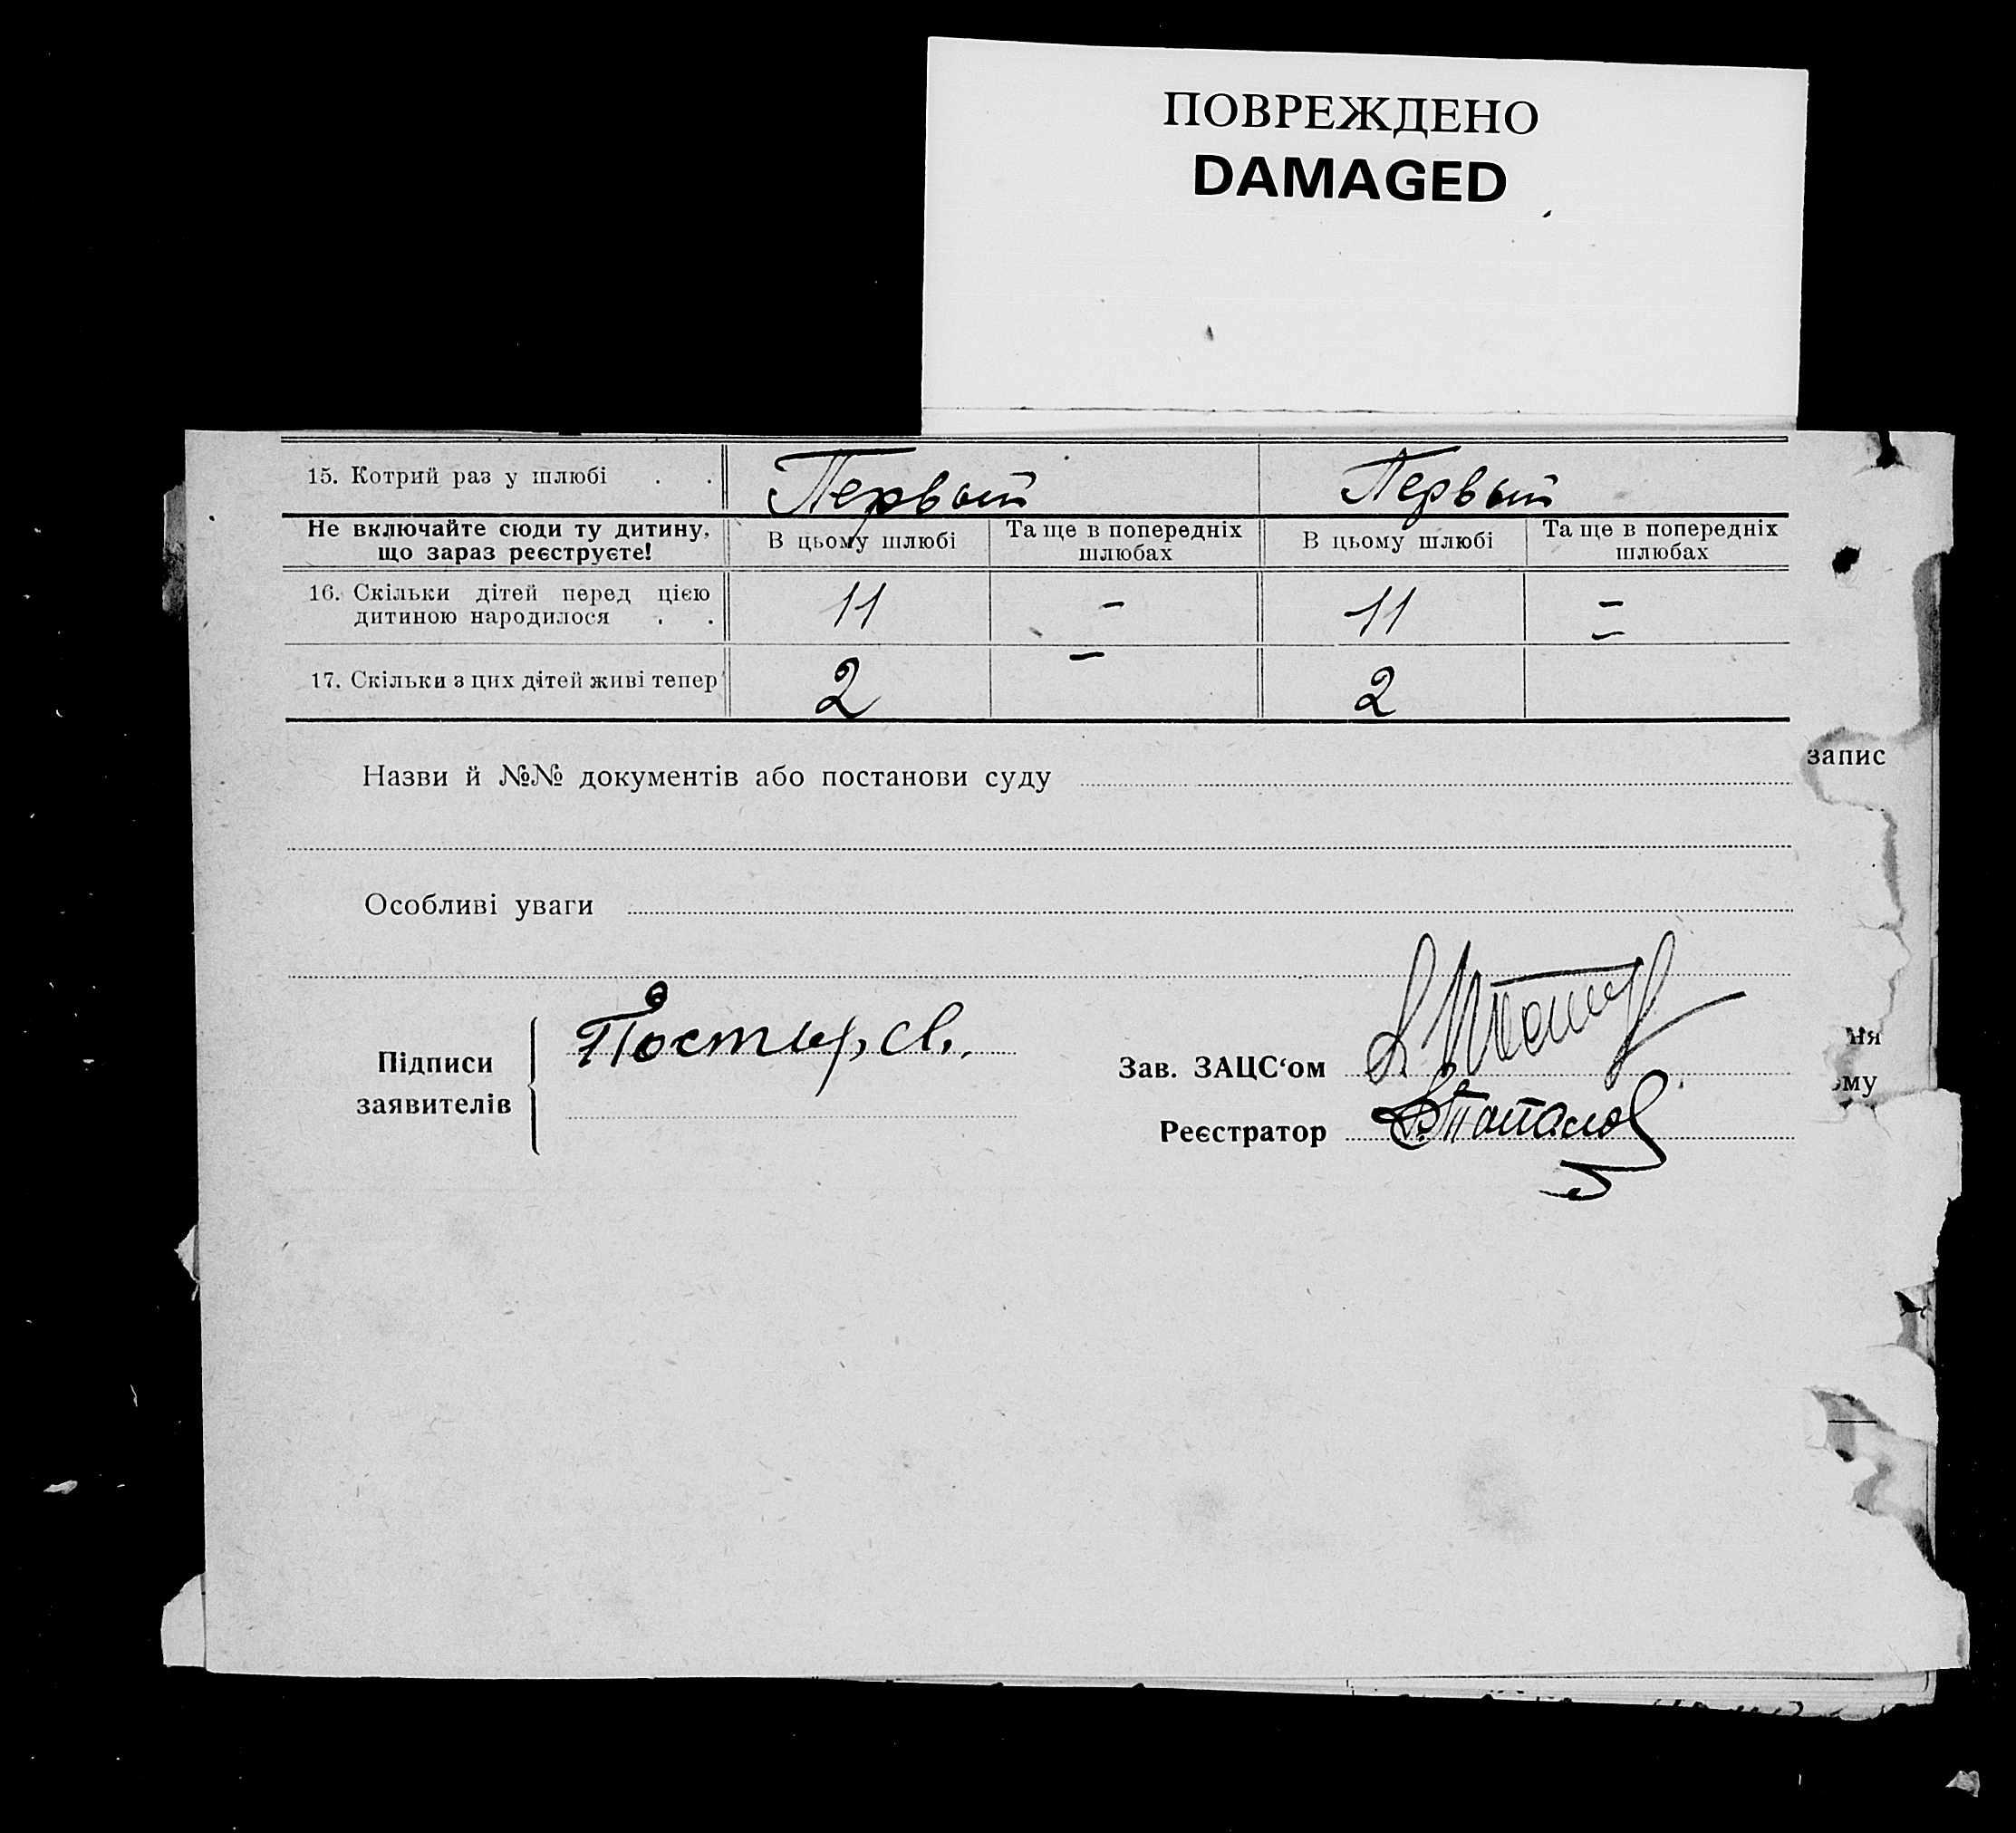 ПОВРЕЖДЕНО
DAMAGED
15. Котрий раз у шлюбі . . Первый Первый
Не включайте сюди ту дитину, що зараз реєструєте! В цьому шлюбі Та ще в попередніх шлюбах В цьому шлюбі Та ще в попередніх шлюбах
16. Скільки дітей перед цією
дитиною народилося . . 11 – 11 –
17. Скільки з цих дітей живі тепер 2 – 2 –
запис
Назви й №№ документів або постанови суду
Особливі уваги
Підписи
заявителів
Зав. ЗАЦС‘ом
Реєстратор
ня
ому